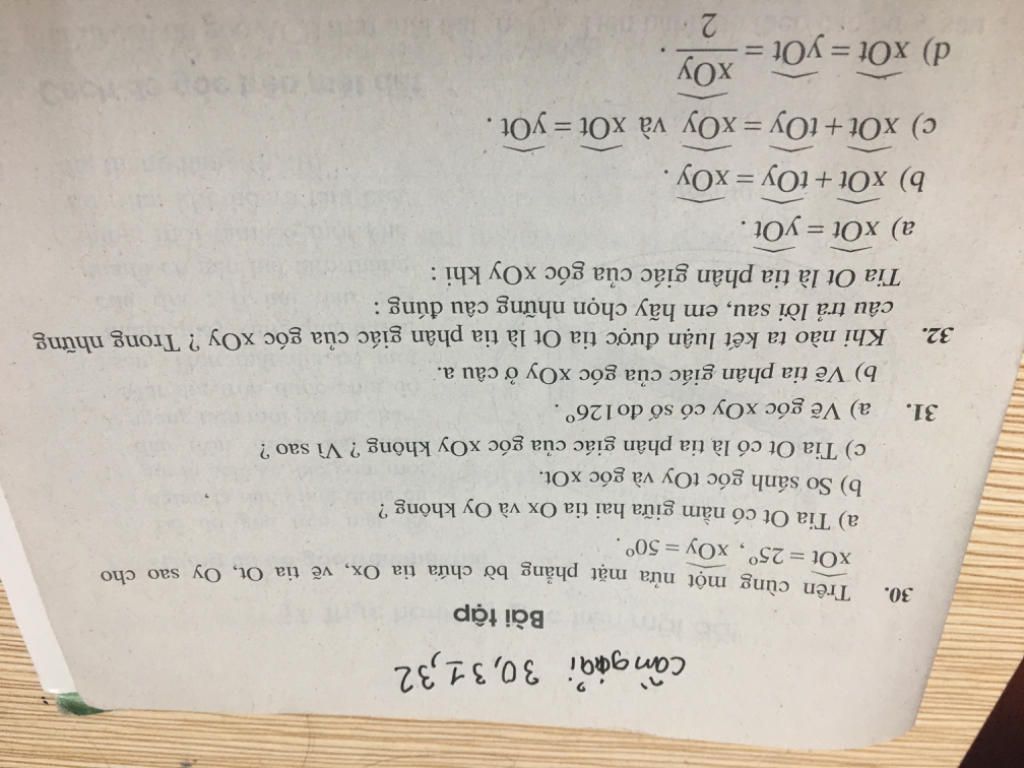 Cần giải 30,31,32
Bài tập
30. Trên cùng một nửa mặt phẳng bờ chứa tia Ox, vẽ tia Ot, Oy sao cho
xOt = 25°, xOy = 50°.
a) Tia Ot có nằm giữa hai tia Ox và Oy không ?
b) So sánh góc tOy và góc xOt.
c) Tia Ot có là tia phân giác của góc xOy không ? Vì sao ?
31. a) Vẽ góc xOy có số đo 126°.
b) Vẽ tia phân giác của góc xOy ở câu a.
32. Khi nào ta kết luận được tia Ot là tia phân giác của góc xOy ? Trong những
câu trả lời sau, em hãy chọn những câu đúng :
Tia Ot là tia phân giác của góc xOy khi :
a) xOt = yOt.
b) xOt + tOy = xOy.
c) xOt + tOy = xOy và xOt = yOt.
d) xOt = yOt = xOy/2.